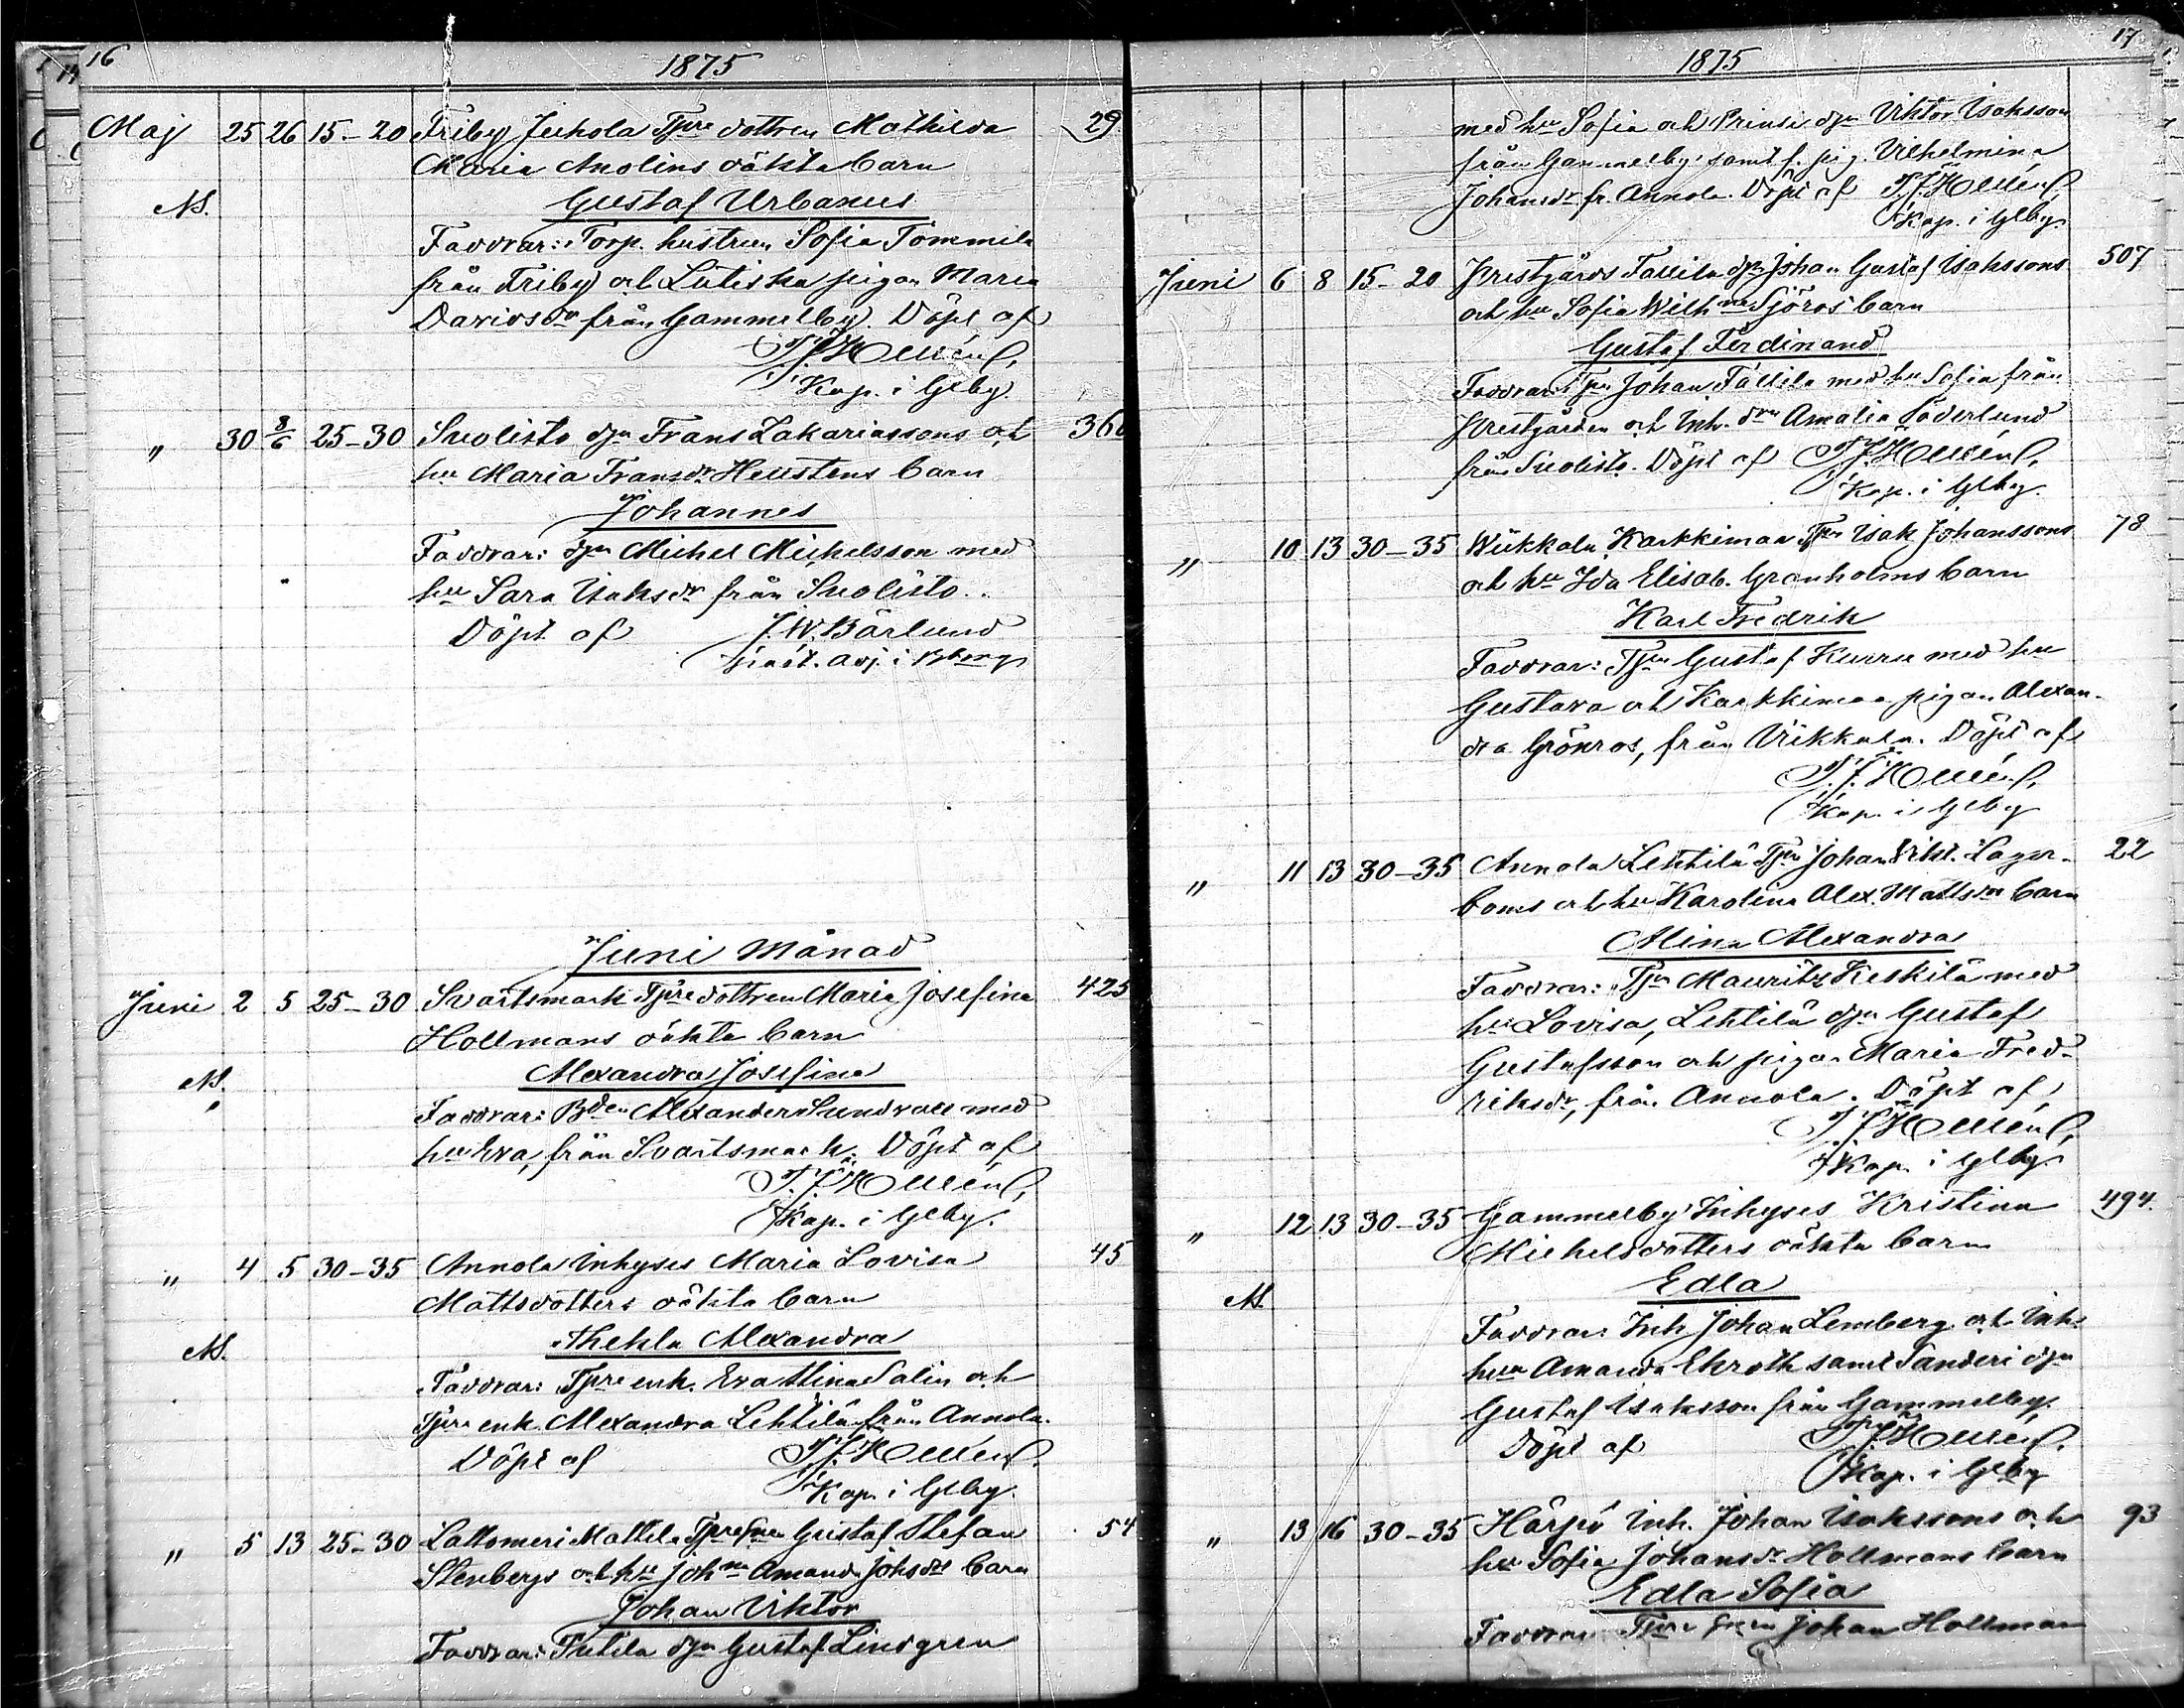 16
1875
Maj 25 26 15-20 Friby Juhola Tpre dottren Mathilda 29
Maria Anolins oäkta barn
N.
Gustaf Urbanus
Faddrar: Torp. hustrun Sofia Tommila
från Friby och Lutiska pigan Maria
Davidsdr från Gammelby. Döpt af
Kap. i Glby.
" 30 8/6 25-30 Suolisto dgn Frans Zakariassons och 360
hu Maria Fransdr Hellstens barn
Johannes
Faddrar: dgn Michel Michelsson med
hu Sara Isaksdr från Suolisto.
Döpt af J. W. Bärlund
past. adj. i Bborg
Juni Månad
Juni 2 5 25-30 Svartsmark Tpre dottren Maria Josefina 425
Hollmans oäkta barn
N.
Alexandra Josefina
Faddrar: Bden Alexander Sundvall med
hu Eva, från Svartsmark. Döpt af
Kap. i Glby.
" 4 5 30-35 Annola Inhyses Maria Lovisa 45
Mattsdotters oäkta barn
N.
Thekla Alexandra
Faddrar: Tpre enk. Eva Stina Salin och
Tpre enk. Alexandra Lehtilä från Annola.
Döpt af
Kap. i Glby.
" 5 13 25-30 Lattomeri Mattila Tpre Gustaf Stefan 54
Stenbergs och hu Johna Amanda Johsdrs barn
Johan Viktor
Faddrar: dgn Gustaf Lindgren
17
1875
med hu Sofia och Prinsi dgn Viktor Isaksson
från Gammelby, samt f. pig. Vilhelmina
Johansdr fr. Annola. Döpt af
Kap. i Glby.
Juni 6 8 15-20 Prestgårds Tallila dgn Johan Gustaf Isakssons 507
och hu Sofia Wilhna Sjöros barn
Gustaf Ferdinand
Faddrar: Tpn Johan Tallila med hu Sofia från
Prestgården och Inh. Amalia Söderlund
från Suolisto. Döpt af
Kap. i Glby.
" 10 13 30-35 Wiikkala Karkkimaa Tpn Isak Johanssons 78
och hu Ida Elisab. Granholms barn
Karl Fredrik
Faddrar: Tpn Gustaf Kurru med hu
Gustava och Karkkimaa pigan Alexan-
dra Grönros, från Viikkala. Döpt af
Kap. i Glby
" 11 13 30-35 Annola Lehtilä Tpn Johan Vikt. Lager- 22
boms och hu Karolina Alex. Mattsdrs barn
Alina Alexandra
Faddrar: Tpn Mauritz Keskilä med
hu Lovisa, Lehtilä dgn Gustaf
Gustafsson och pigan Maria Fred-
riksdr, från Annola. Döpt af
Kap. i Glby.
" 12 13 30-35 Gammelby Inhyses Kristina 494.
Michelsdotters oäkta barn
N.
Edla
Faddrar: Inh. Johan Lemberg och Inh.
hun Amanda Ekroth samt Sanderi dgn
Gustaf Isaksson från Gammelby.
Döpt af
Kap. i Glby
" 13 16 30-35 Härpö Inh. Johan Isakssons och 93
hu Sofia Johansdr Hollmans barn
Edla Sofia
Faddrar: Tpre Johan Hollman